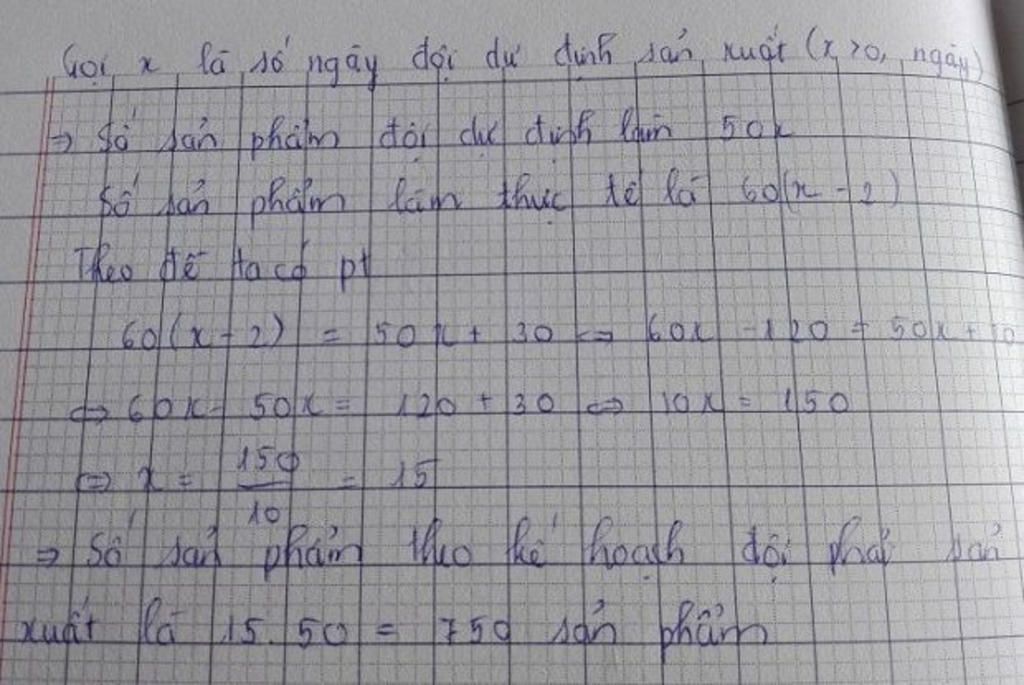 Gọi x là số ngày đội dự định sản xuất (x>0, ngày)
⇒ Số sản phẩm đội dự định làm 50x
Số sản phẩm làm thực tế là 60(x - 2)
Theo đề ta có pt
60(x - 2) = 50x + 30 ⇔ 60x - 120 = 50x + 30
⇔ 60x - 50x = 120 + 30 ⇔ 10x = 150
⇔ x = 150/10 = 15
⇒ Số sản phẩm theo kế hoạch đội phải sản
xuất là 15.50 = 750 sản phẩm